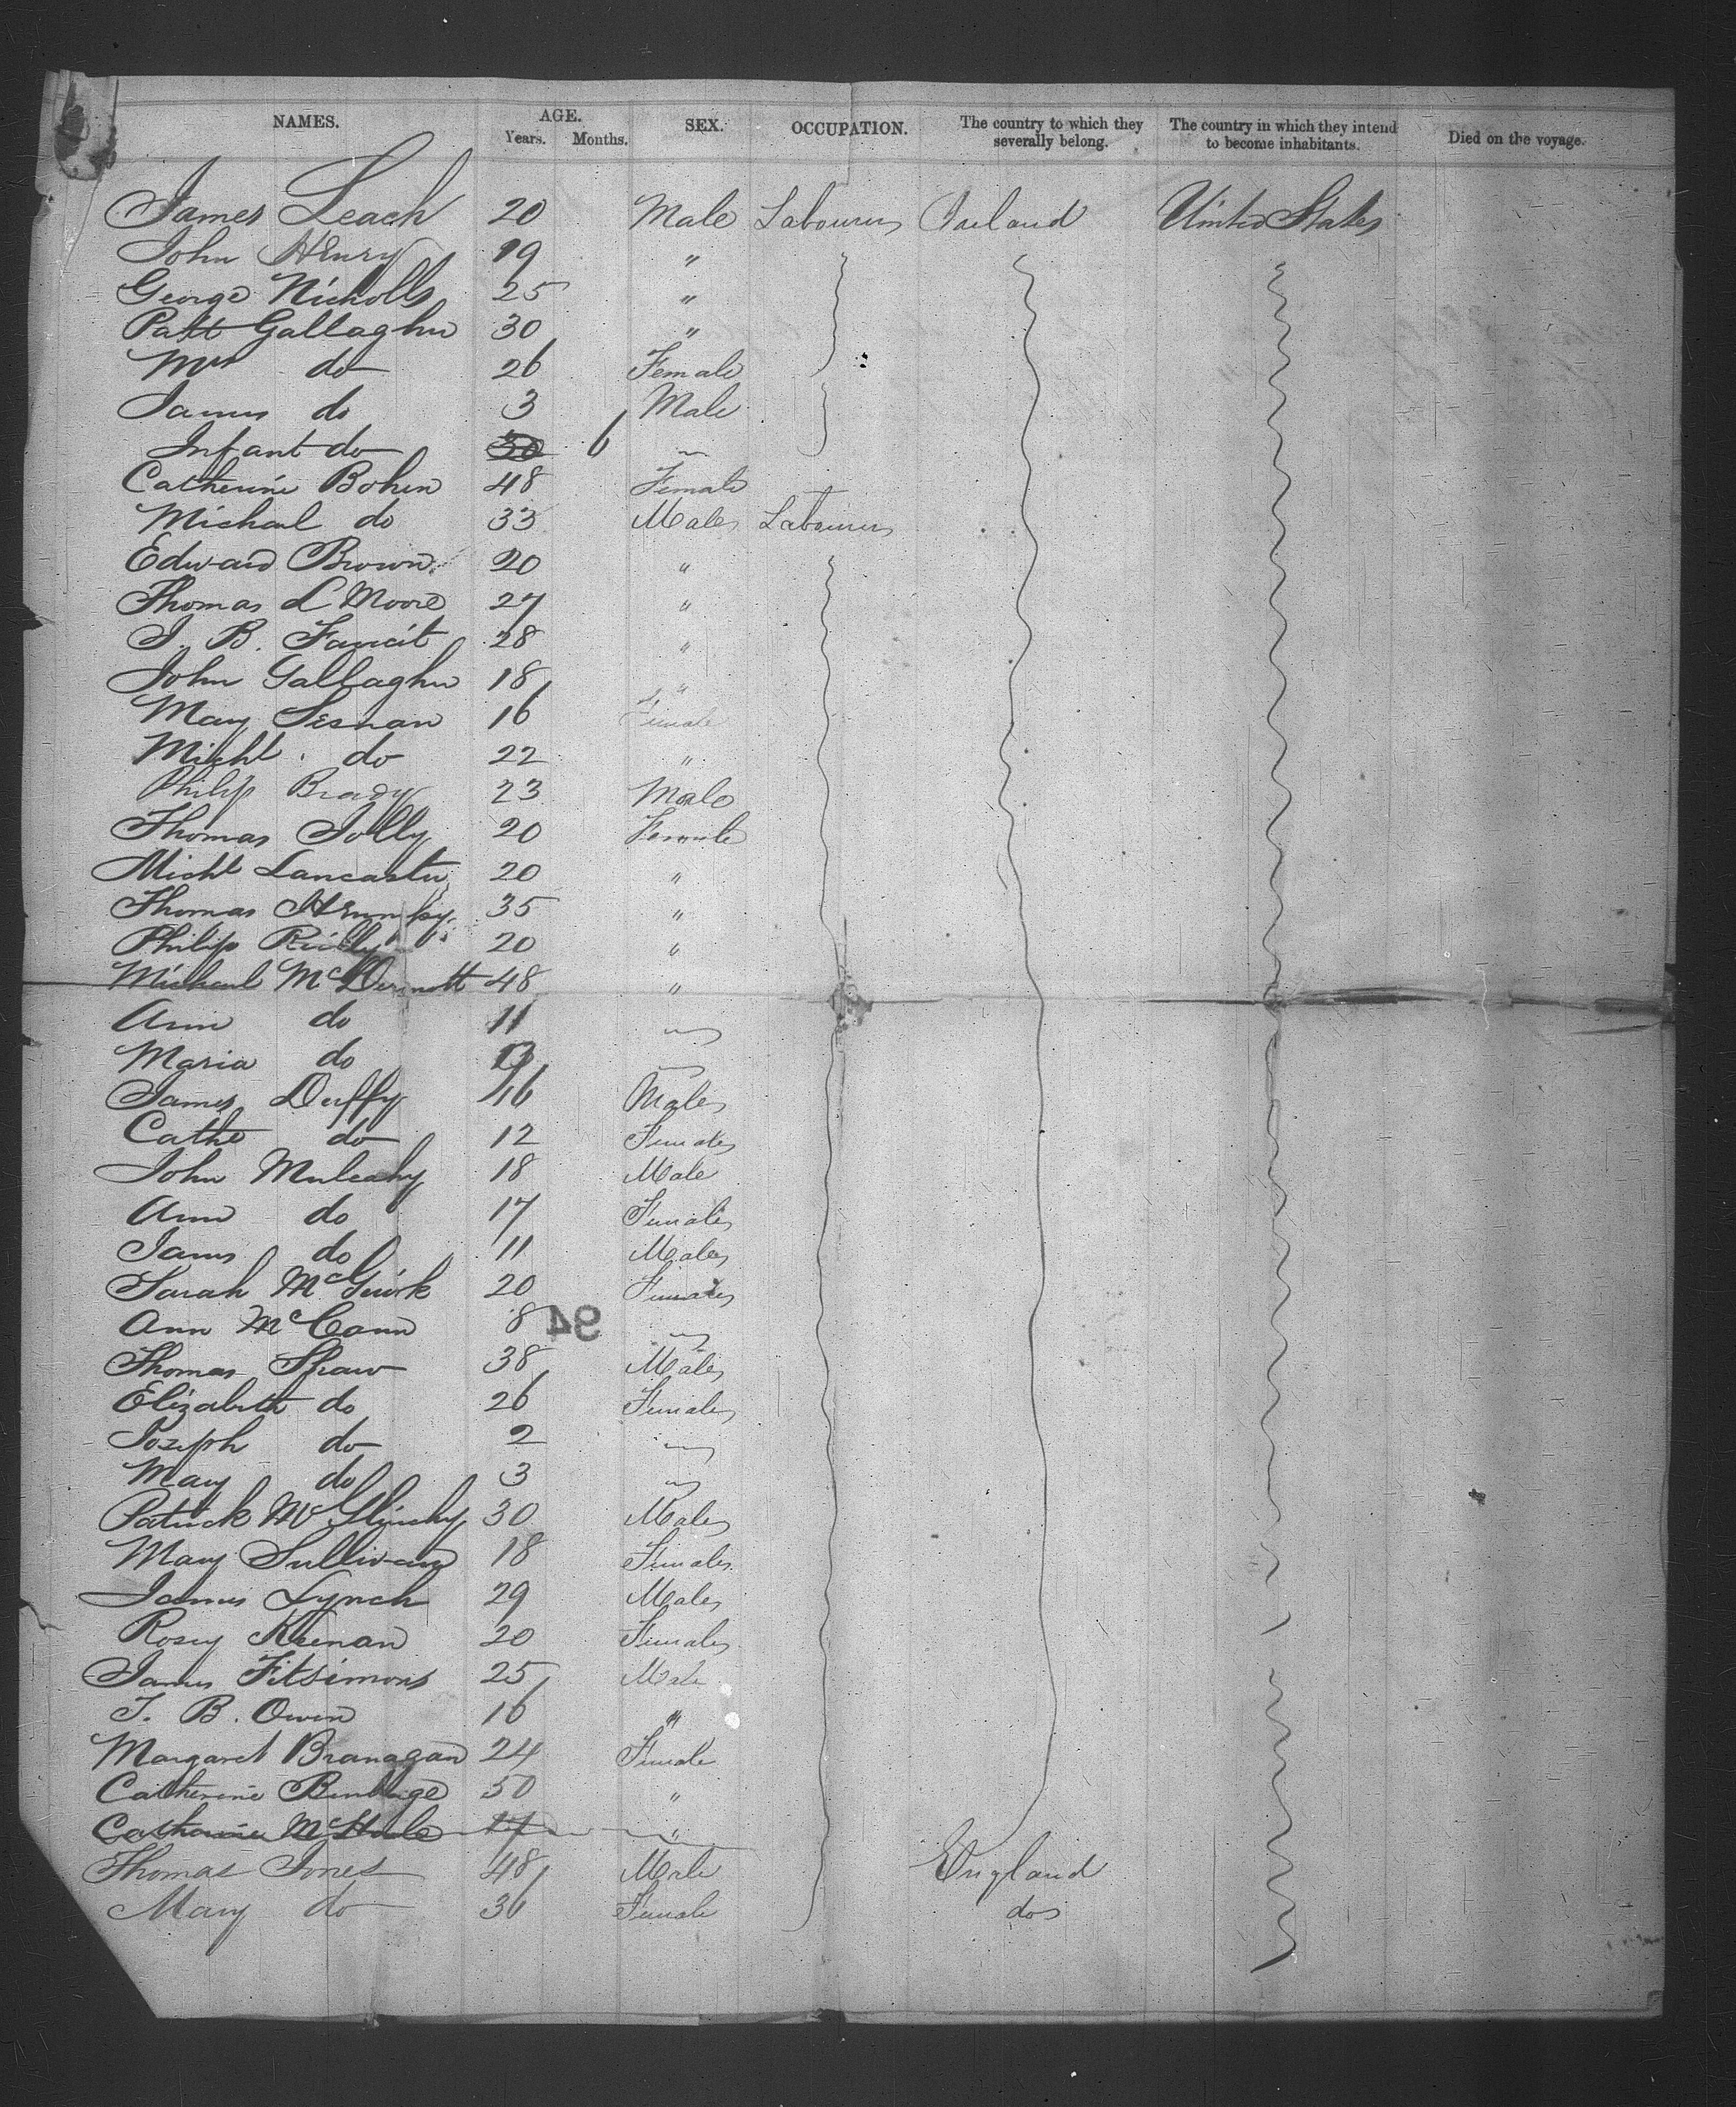 NAMES. AGE. Years. Months. SEX. OCCUPATION. The country to which they severally belong. The country in which they intend to become inhabitants. Died on the voyage.
James Leach 20 Male Labourers Ireland United States
John Henry 19 "
George Nicholls 25 "
Patt Gallagher 30 "
Mrs do 26 Female
James do 3 Male
Infant do 6
Catherine Bohen 48 Female
Michael do 33 Males Labourers
Edward Brown 20 "
Thomas L Moore 27 "
J. B. Faucit 28 "
John Gallagher 18 "
Mary 16 Female
Michl. do 22 "
Philip Brady 23 Male
Thomas Jolly 20 Female
Michl Lancaster 20 "
Thomas 35 "
Philip Reilly 20 "
Michael McDermott 48 "
Ann do 11
Maria do
James Duffy 16 Males
Cathe do 12 Females
John Mulcahy 18 Male
Ann do 17 Females
James do 11 Males
Sarah McGuirk 20 Females
Ann McCann 8
94
Thomas Shaw 38 Males
Elizabeth do 26 Females
Joseph do 2
Mary do 3
Patrick McGlinchy 30 Males
Mary Sullivan 18 Females
James Lynch 29 Males
Rosey Keenan 20 Females
James Fitsimons 25 Male
J. B. Owen 16 "
Margaret Branagan 24 Female
Catherine 50 "
Catherine McHale 17 "
Thomas Jones 48 Male England
Mary do 36 Female do